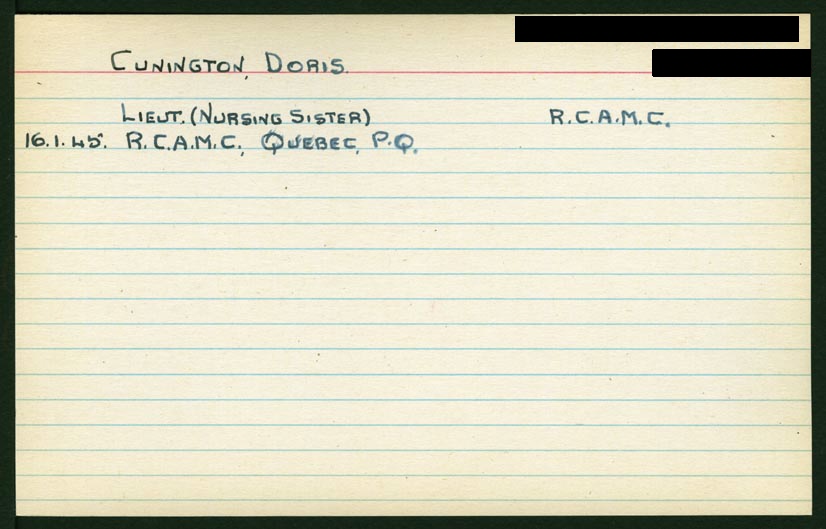 CUNINGTON, DORIS.
LIEUT. (NURSING SISTER) R.C.A.M.C.
16.1.45. R.C.A.M.C., QUEBEC, P.Q.